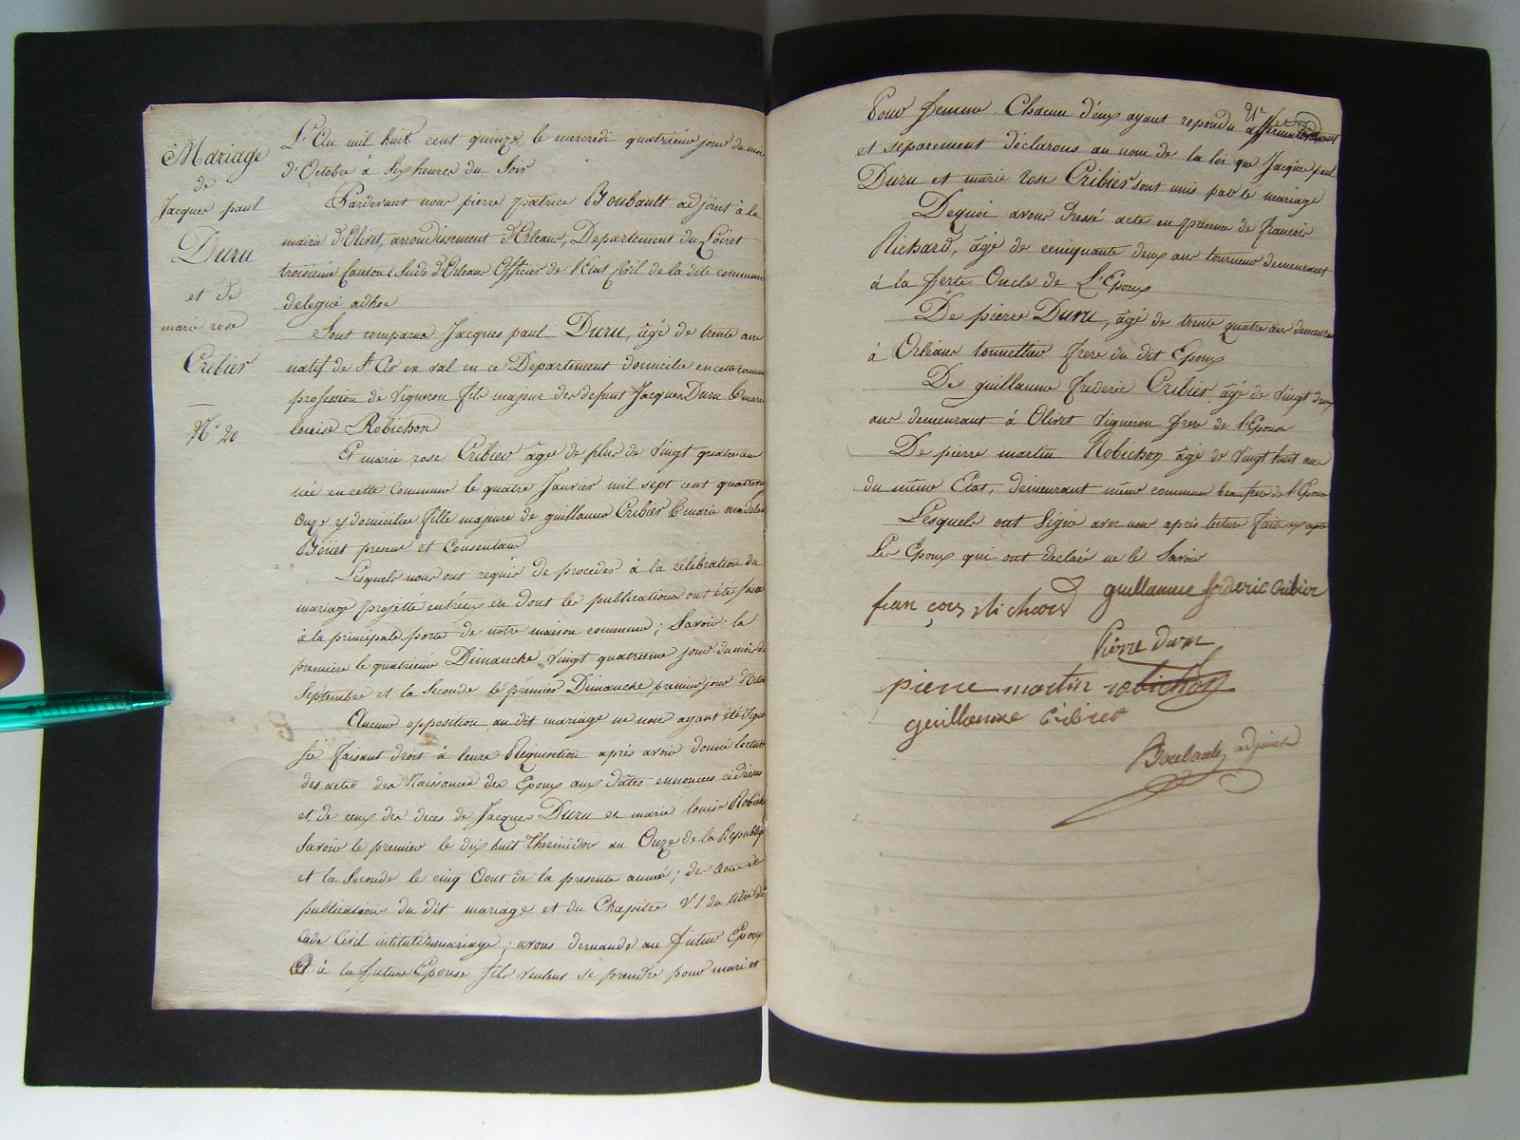 Mariage
de
Jacques paul
Duru
et de
marie rose
Cribier
N.º 20
L'An mil huit cent quinze le mercredi quatrieme jour du mois
d'Octobre à six heures du Soir
Pardevant nous pierre patrice Boubault adjoint à la
mairie d'Olivet, arrondissement d'Orleans, Departement du Loiret
troisieme Canton Sud d'Orleans Officier de l'Etat Civil de la dite commune
delegué adhoc
Sont comparus Jacques paul Duru, âgé de trente ans
natif de St Cir en val en ce Departement domicilié en cette commune
profession de Vigneron fils majeur des defunt Jacques Duru & marie
louise Robichon
Et marie rose Cribier âgée de plus de Vingt quatre ans
née en cette Commune le quatre Janvier mil sept cent quatrevingt
Onze y domiciliée fille majeure de guillaume Cribier & marie madelaine
presens et Consentans
Lesquels nous ont requis de proceder à la célébration du
mariage projetté entr'eux en dont les publications ont été faites
à la principale porte de notre maison commune; Savoir la
premiere le quatrieme Dimanche Vingt quatrieme jour du mois de
Septembre et la Seconde le premier Dimanche premier jour d'Octobre
Aucune opposition au dit mariage ne nous ayant été Signifiée
faisant droit à leur Réquisition après avoir donné lecture
des actes des Naissances des Epoux aux dates enoncées
et de ceux des deces de Jacques Duru et marie louise Robichon
Savoir le premier le dix huit Thermidor an Onze de la Republique
et la Seconde le cinq Aout de la presente année; de l'acte de
publication du dit mariage et du Chapitre VI du titre du
Code Civil intitulé du mariage; avons demandé au futur Epoux
Et à la future Epouse s'ils veulent se prendre pour mari et
Pour femme Chacun d'eux ayant repondu affirmativement
et separement déclarons au nom de la loi que Jacques paul
Duru et marie rose Cribier sont unis par le mariage
Dequoi avons dressé acte en presence de francois
Richard, âgé de cinquante deux ans tourneur demeurant
à la ferté Oncle de L'Epoux
De pierre Duru, âgé de trente quatre ans demeurant
à Orléans tonnellier frere du dit Epoux
De guillaume frederic Cribier âgé de Vingt deux
ans demeurant à Olivet Vigneron frere de l'Epouse
De pierre martin Robichon âgé de Vingt huit ans
du même Etat, demeurant même commune beau frere de l'Epoux
Lesquels ont Signé avec nous après lecture faite
Les Epoux qui ont declaré ne le Savoir
fran çois Richard
guillaume frederic cribier
Pierre Duru
pierre martin robichon
guillaume cribier
Boubault adjoint